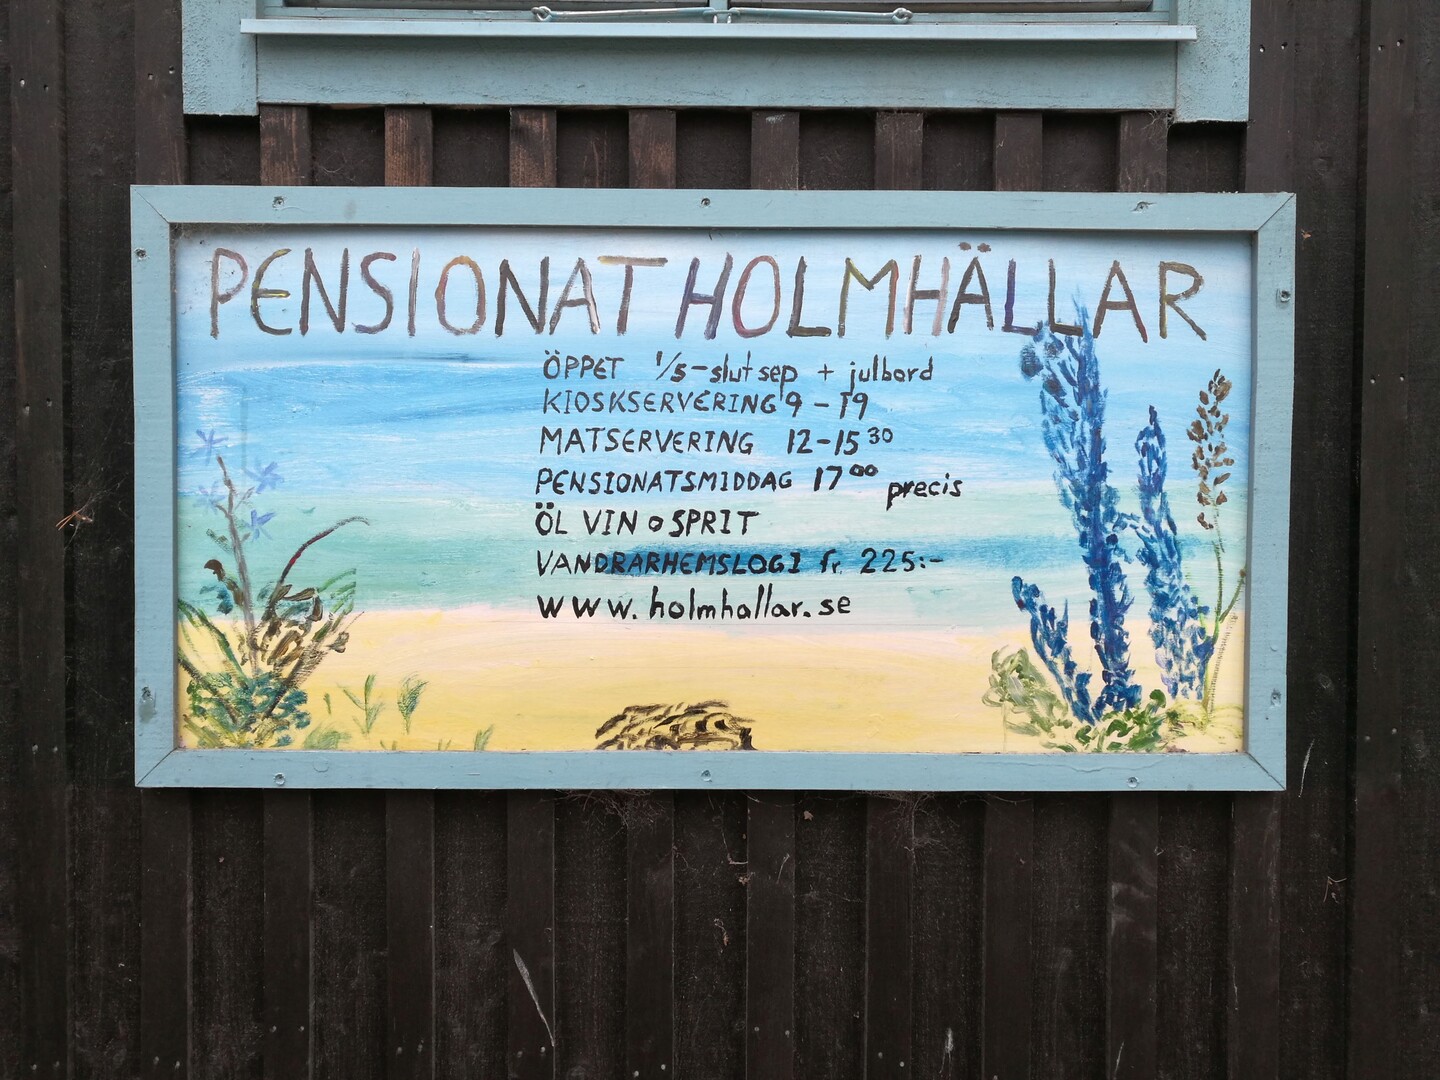 PENSIONAT HOLMHÄLLAR
ÖPPET 1/5-slut sep + julbord
KIOSKSERVERING 9 - 19
MATSERVERING 12-15 30
PENSIONATSMIDDAG 17 00 precis
ÖL VIN o SPRIT
VANDRARHEMSLOGI fr. 225:-
www.holmhallar.se